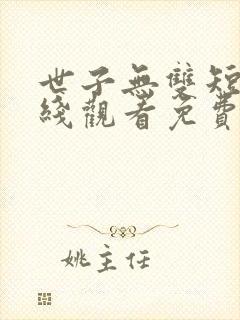 世子無雙短
綫觀看免費
姚主任